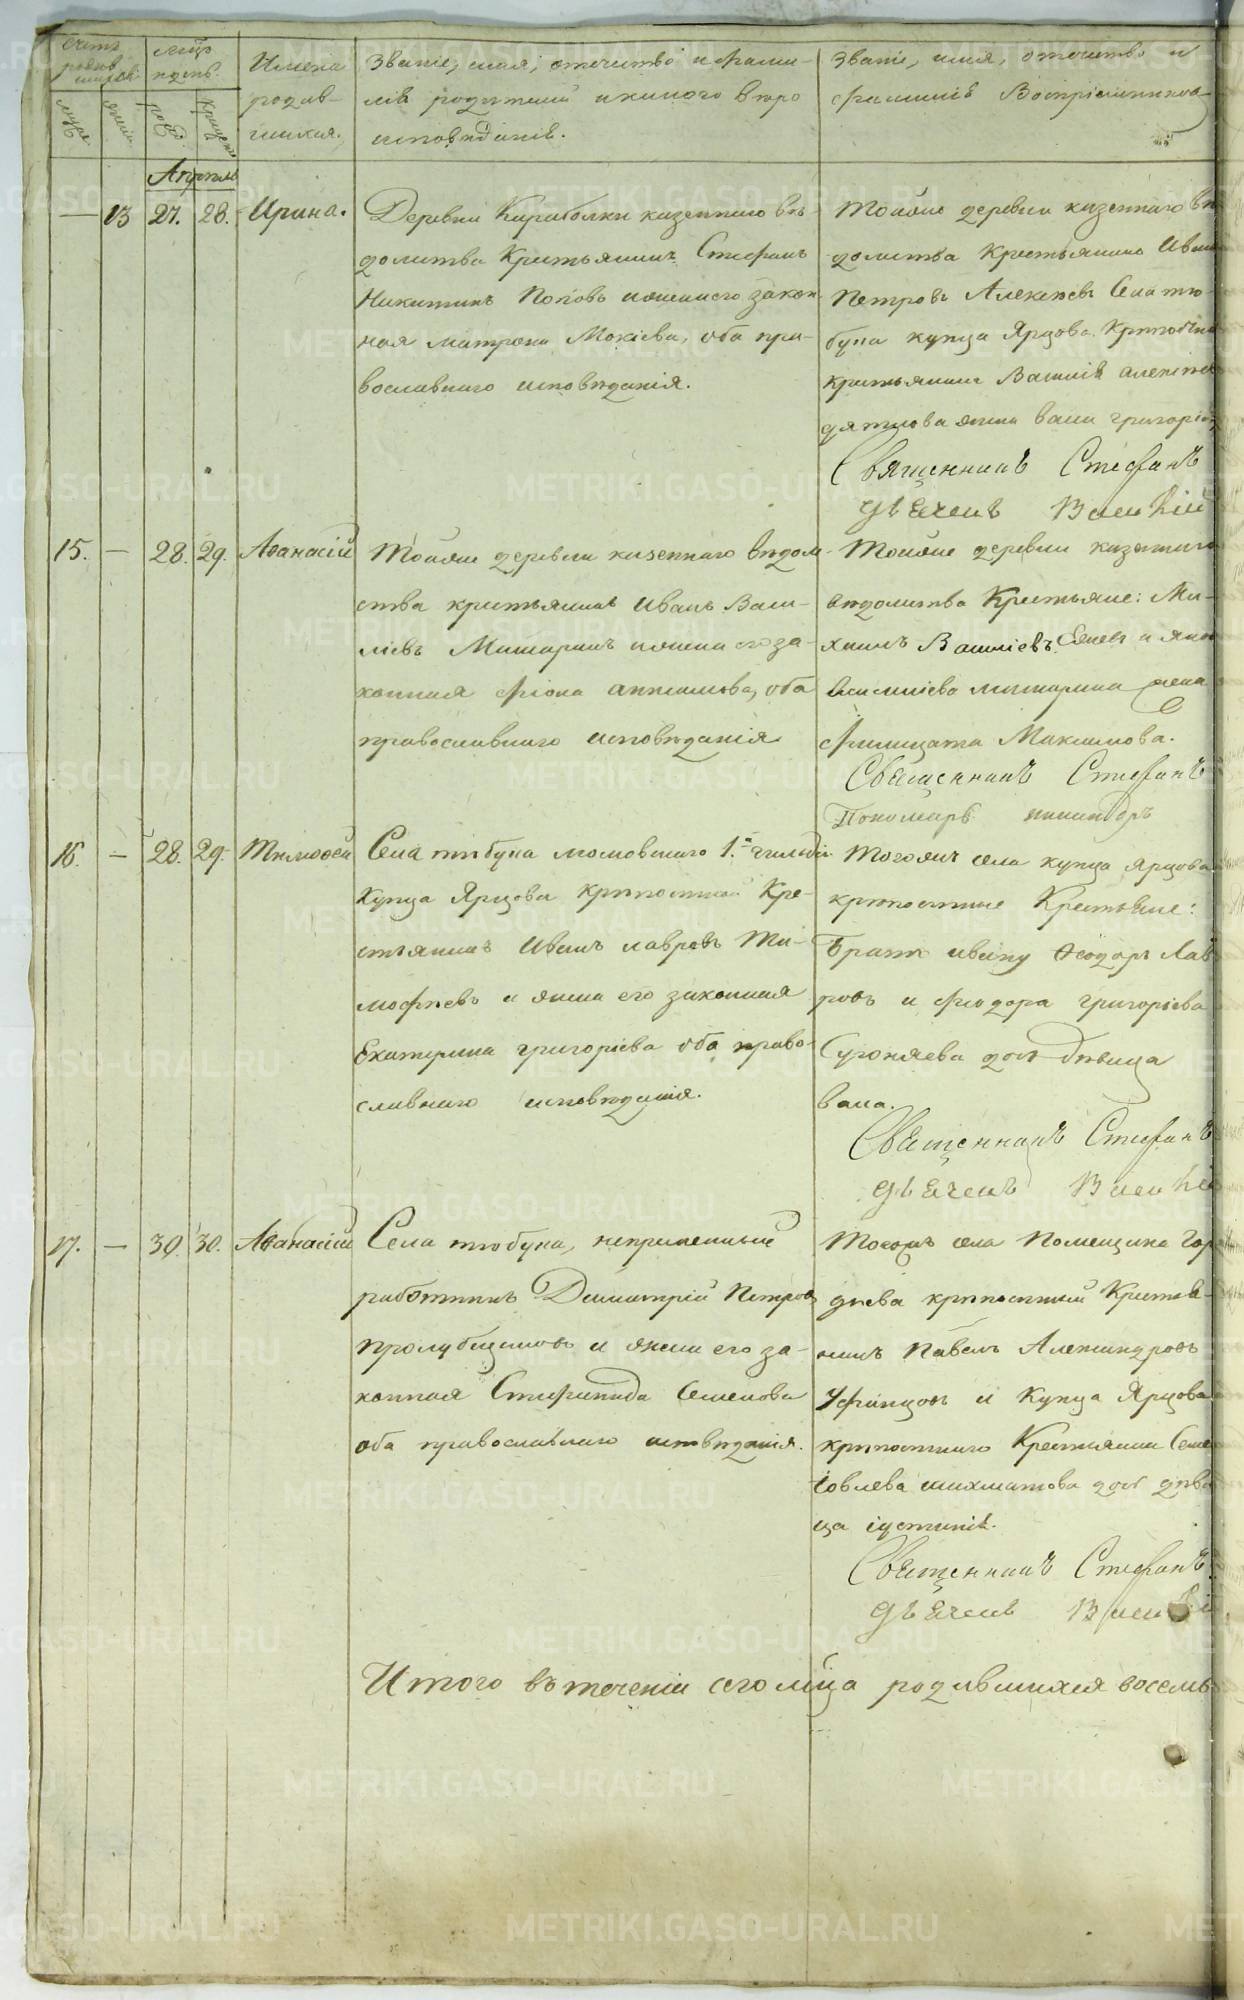 Счетъ родившихся
мужск.
женск.
Мцъ и день
рожд.
крещен.
Имена родившихся.
Званіе, имя, отчество и фамилія родителей и какого вѣроисповѣданія.
Званіе, имя, отчество и фамилія Воспріемниковъ
Апрѣль
— 13 27. 28. Ирина.
Деревни Караболки казеннаго вѣ-
домства Крестьянинъ Стефанъ
Никитинъ Поповъ и жена его закон-
ная Матрона Мокіева, оба пра-
вославнаго исповѣданія.
Тойже деревни казеннаго вѣ
домства Крестьянинъ Иванъ
Петровъ Алексѣевъ Села тю-
бука купца Ярцова Крѣпостна
крестьянина Василія
дятлова жена васи григорі
Священникъ Стефанъ
дьячекъ Василій
15. — 28. 29. Аѳанасій
Тойже деревни казеннаго вѣдом-
ства крестьянинъ Иванъ Васи-
ліевъ Мишаринъ и жена его за-
конная фіона оба
православнаго исповѣданія
Тойже деревни казеннаго
вѣдомства Крестьяне: Ми-
хаилъ Василіевъ и яко
василіева мишарина жена
Филицата Максимова.
Священникъ Стефанъ
Пономарь никандръ
16. — 28. 29. Тимоѳей
Села тюбука московскаго 1й гильдіи
Купца Ярцова крѣпостной Кре-
стьянинъ Иванъ лавровъ Ти-
мофѣевъ и жена его законная
Екатерина григоріева оба право-
славнаго исповѣданія.
Тогожъ села купца Ярцова
крѣпостные Крестьяне:
Братъ ивану Ѳеодоръ Лав
ровъ и феодора григоріева
Сугоняева дочь дѣвица
васа.
Священникъ Стефанъ
дьячекъ Василій
17. — 30. 30. Аѳанасій
Села тюбука, непремѣнный
работникъ Димитрій Петровъ
пролубщиковъ и жена его за-
конная Стефанида Семенова
оба православнаго исповѣданія.
Тогожъ села Помещика Гор
дѣева крѣпостной Крестья-
нинъ Павелъ Александровъ
Уфинцовъ и Купца Ярцова
крѣпостнаго Крестьянина Семе
іовлева шихматова дочь дѣви
ца іустинія.
Священникъ Стефанъ
дьячекъ Василій
Итого въ теченіи сего мца родившихся восемь
METRIKI.GASO-URAL.RU